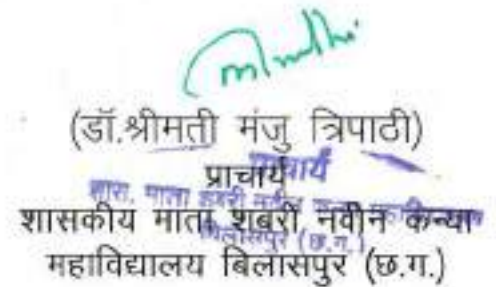 (डॉ.श्रीमती मंजु त्रिपाठी)
प्राचार्य
प्राचार्य
शास. माता शबरी नवीन कन्या महाविद्यालय
शासकीय माता शबरी नवीन कन्या
बिलासपुर (छ.ग.)
महाविद्यालय बिलासपुर (छ.ग.)